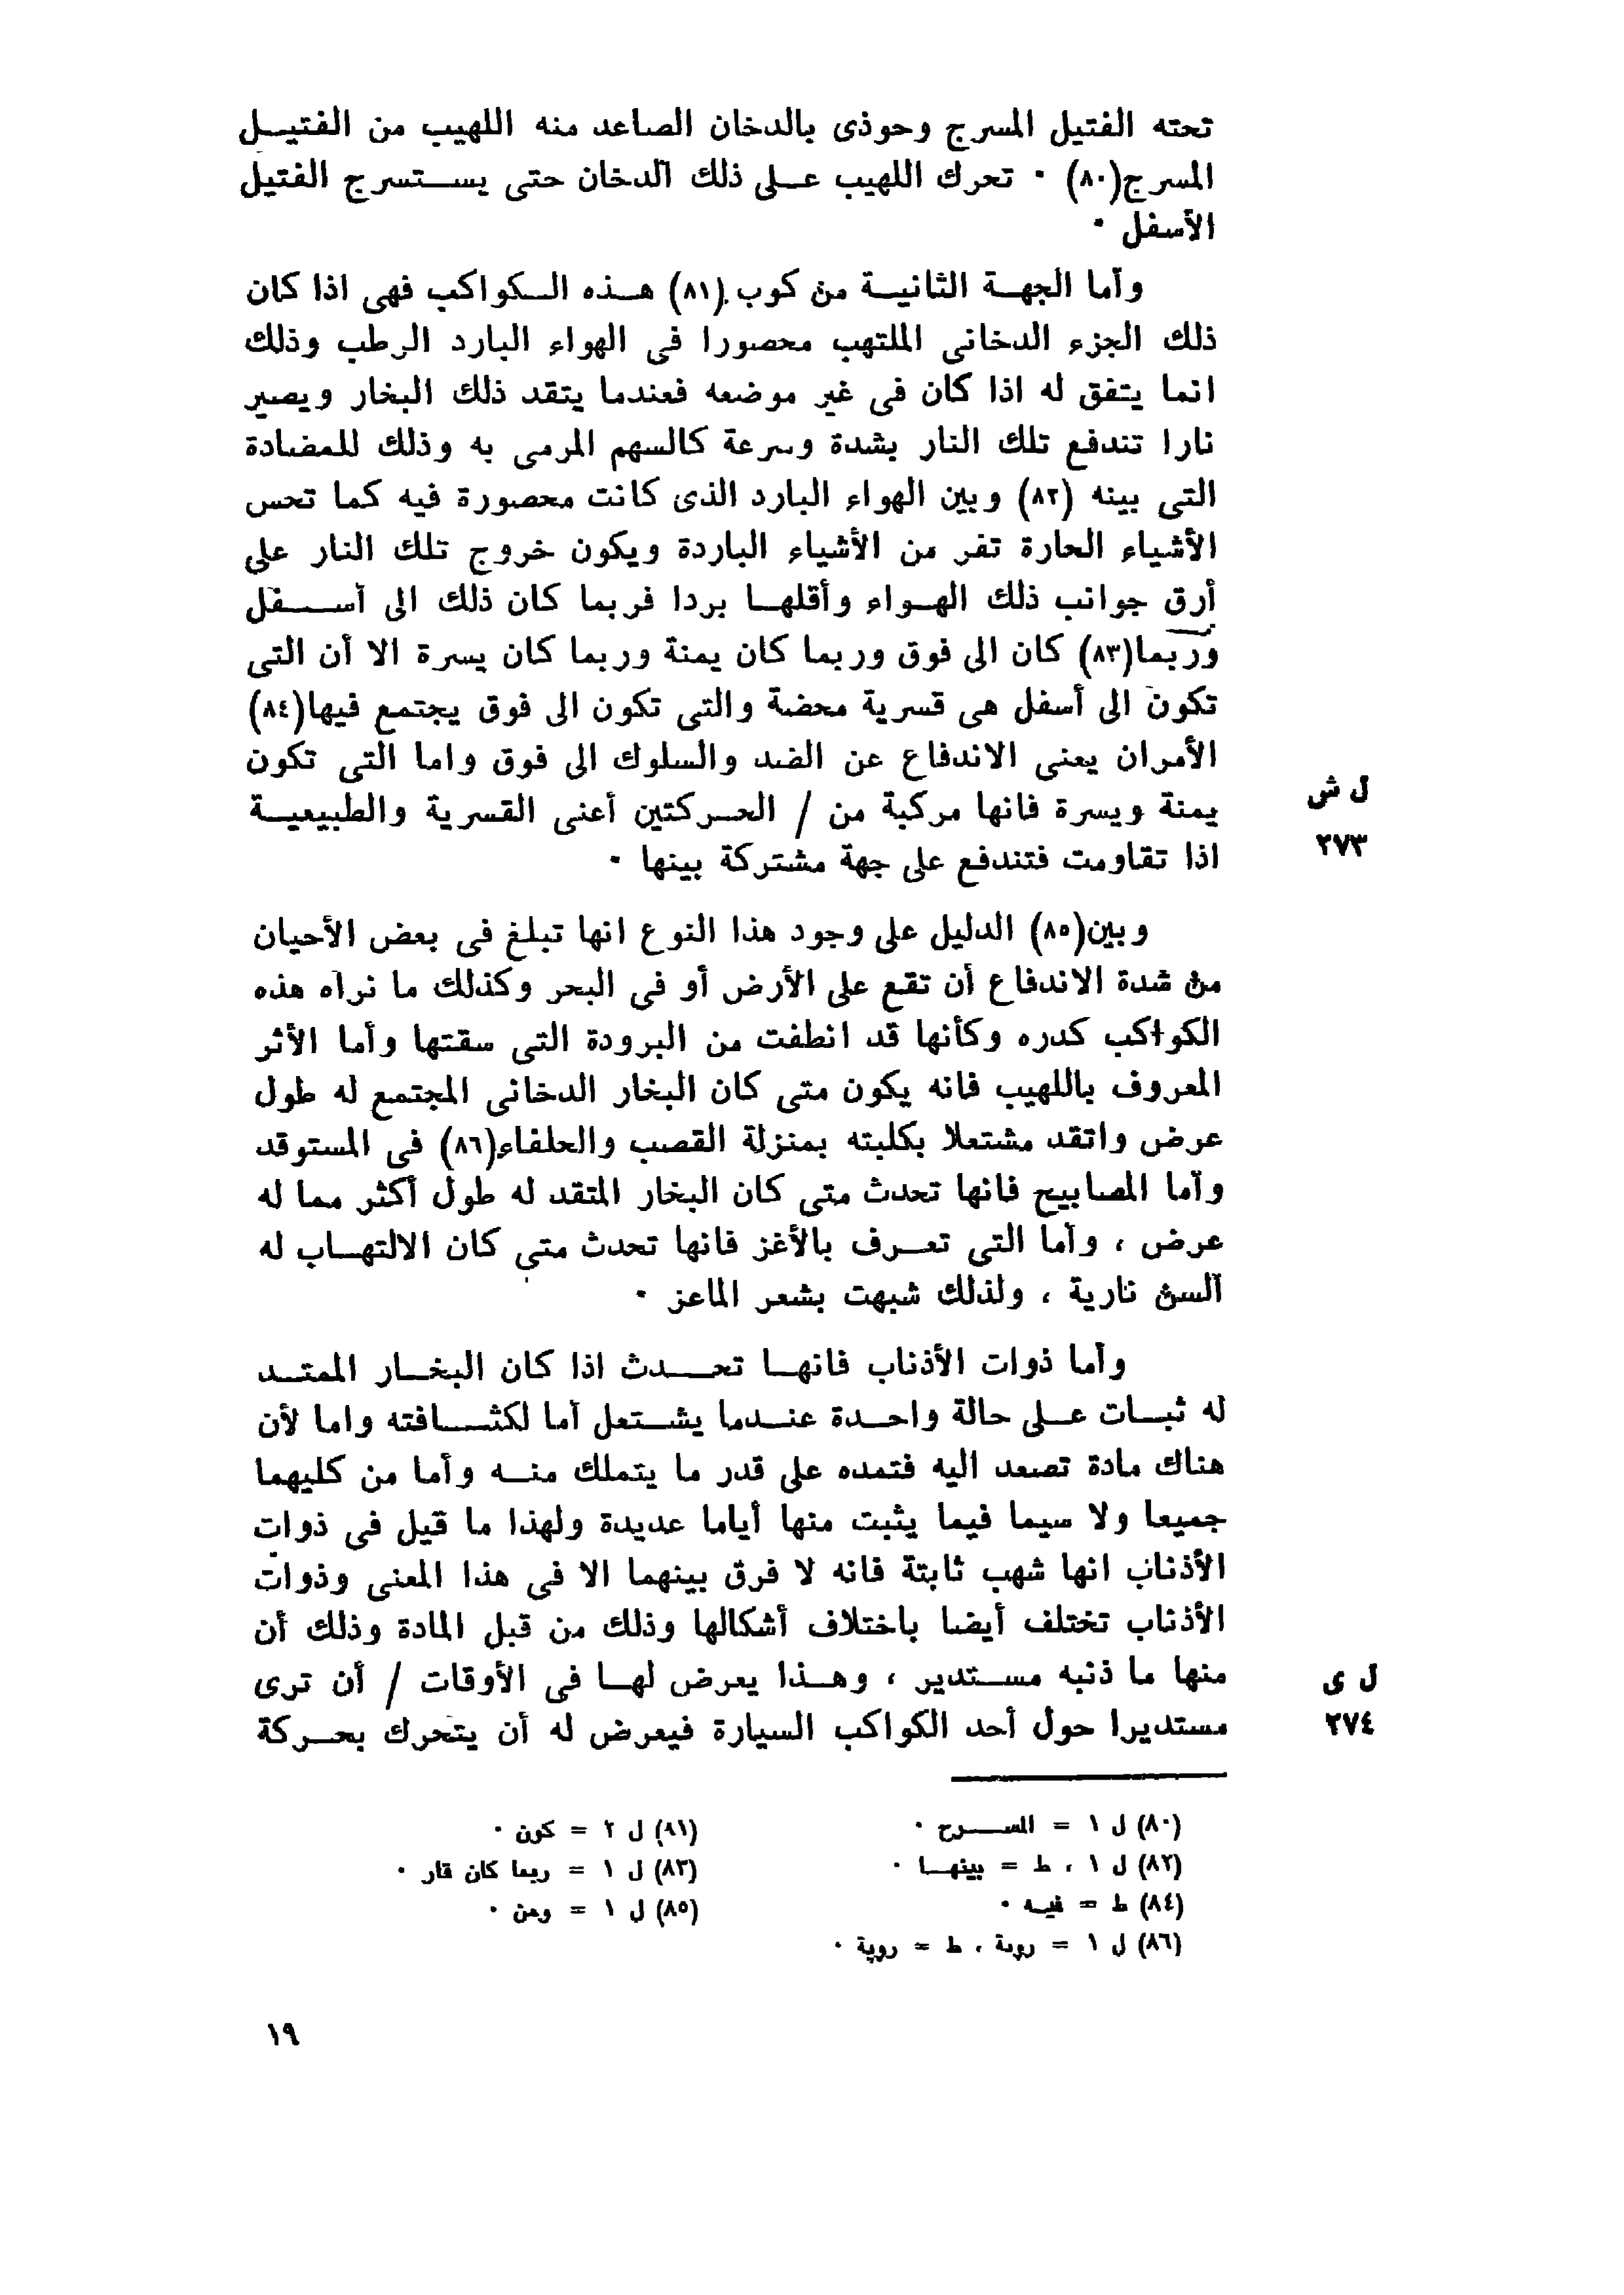 تحته الفتيل المسرج وحوذى بالدخان الصاعد منه اللهيب من الفتيل
المسرج(٨٠) ٠ تحرك اللهيب على ذلك الدخان حتى يستسرج الفتيل
الأسفل ٠
وأما الجهة الثانية من كوب (٨١) هذه الكواكب فهى اذا كان
ذلك الجزء الدخانى الملتهب محصورا فى الهواء البارد الرطب وذلك
انما يتفق له اذا كان فى غير موضعه فعندما يتقد ذلك البخار ويصير
نارا تندفع تلك النار بشدة وسرعة كالسهم المرمى به وذلك للمضادة
التى بينه (٨٢) وبين الهواء البارد الذى كانت محصورة فيه كما تحس
الأشياء الحارة تفر من الأشياء الباردة ويكون خروج تلك النار على
أرق جوانب ذلك الهواء وأقلها بردا فربما كان ذلك الى أسفل
وربما(٨٣) كان الى فوق وربما كان يمنة وربما كان يسرة الا أن التى
تكون الى أسفل هى قسرية محضة والتى تكون الى فوق يجتمع فيها(٨٤)
الأمران يعنى الاندفاع عن الضد والسلوك الى فوق واما التى تكون
يمنة ويسرة فانها مركبة من / الحركتين أعنى القسرية والطبيعية
ل ش
٢٧٣
اذا تقاومت فتندفع على جهة مشتركة بينها ٠
وبين(٨٥) الدليل على وجود هذا النوع انها تبلغ فى بعض الأحيان
من شدة الاندفاع أن تقع على الأرض أو فى البحر وكذلك ما نراه هذه
الكواكب كدره وكأنها قد انطفت من البرودة التى سقتها وأما الأثر
المعروف باللهيب فانه يكون متى كان البخار الدخانى المجتمع له طول
عرض واتقد مشتعلا بكليته بمنزلة القصب والحلفاء(٨٦) فى المستوقد
وأما المصابيح فانها تحدث متى كان البخار المتقد له طول أكثر مما له
عرض ، وأما التى تعرف بالأغز فانها تحدث متى كان الالتهاب له
ألسن نارية ، ولذلك شبهت بشعر الماعز ٠
وأما ذوات الأذناب فانها تحدث اذا كان البخار الممتد
له ثبات على حالة واحدة عندما يشتعل أما لكثافته واما لأن
هناك مادة تصعد اليه فتمده على قدر ما يتملك منه وأما من كليهما
جميعا ولا سيما فيما يثبت منها أياما عديدة ولهذا ما قيل فى ذوات
الأذناب انها شهب ثابتة فانه لا فرق بينهما الا فى هذا المعنى وذوات
الأذناب تختلف أيضا باختلاف أشكالها وذلك من قبل المادة وذلك أن
منها ما ذنبه مستدير ، وهذا يعرض لها فى الأوقات / أن ترى
ل ى
٢٧٤
مستديرا حول أحد الكواكب السيارة فيعرض له أن يتحرك بحركة
(٨٠) ل ١ = السرح ٠
(٨١) ل ٢ = كون ٠
(٨٢) ل ١ ، ط = بينها ٠
(٨٣) ل ١ = ربما كان قار ٠
(٨٤) ط = فيه ٠
(٨٥) ل ١ = ومن ٠
(٨٦) ل ١ = روبة ، ط = روية ٠
١٩